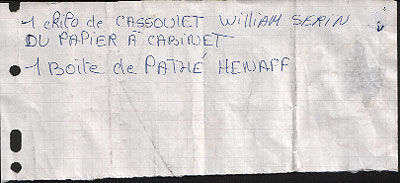 1 chilo de CASSOULET William SERIN
DU PAPIER À CABINET
1 Boîte de PATHÉ HENAFF